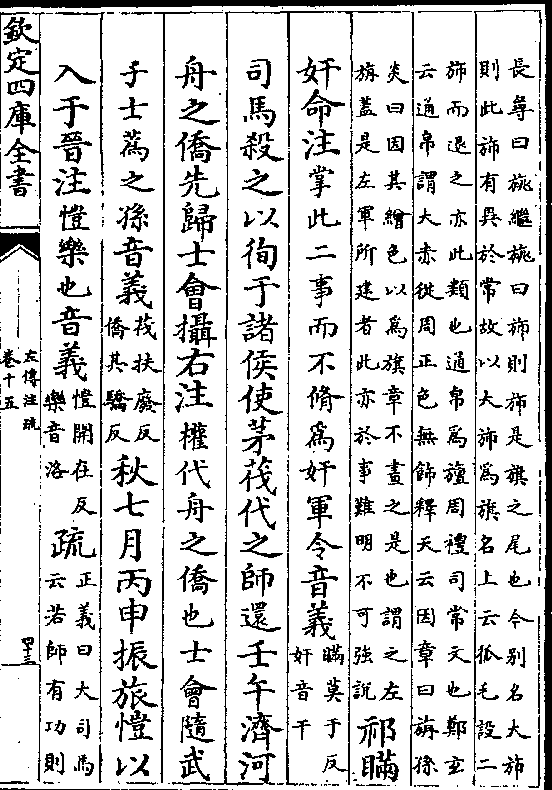 長尋曰旐繼旐曰斾則斾是旗之尾也今别名大斾
則此斾有異於常故以大斾為旗名上云狐毛設二
斾而退之亦此類也通帛為旜周禮司常文也鄭玄
云通帛謂大赤從周正色無飾釋天云因章曰旃孫
炎曰因其繒色以為旗章不畫之是也謂之左
旃蓋是左軍所建者此亦於事難明不可強說
祁瞞
奸命注掌此二事而不脩為奸軍令音義
瞞莫于反
奸音干
司馬殺之以徇于諸侯使茅茷代之師還壬午濟河
舟之僑先歸士會攝右注權代舟之僑也士會隨武
子士蔿之孫音義
茷扶廢反
僑其驕反
秋七月丙申振旅愷以
入于晉注愷樂也音義
愷開在反
樂音洛
疏
正義曰大司馬
云若師有功則
欽定四庫全書
左傳注疏
卷十五
四十三